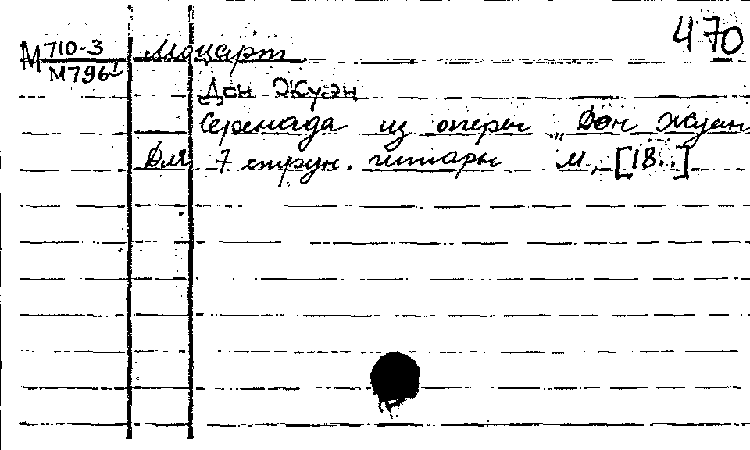 470
М 710-3 Моцарт
М796
Дон Жуан
Серенада из оперы „Дон Жуан
Для 7 струн. гитары М, [18..]